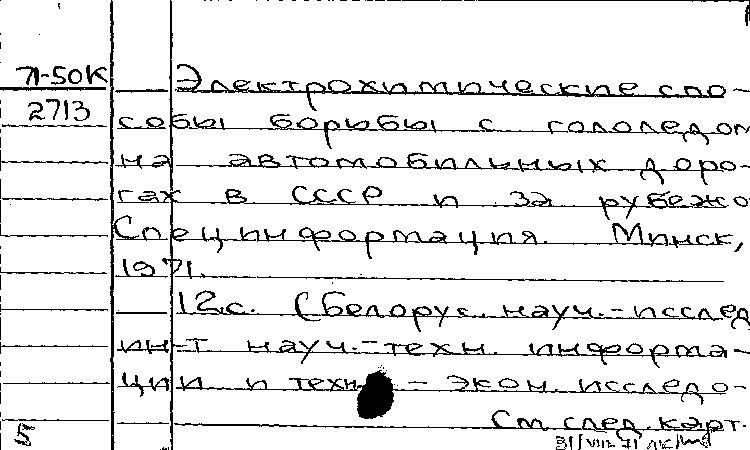 71-50К
2713
Электрохимические спо-
собы борьбы с гололедом
на автомобильных доро-
гах в СССР и за рубежо
Специнформация. Минск,
1971.
12с. (Белорус. науч.-исслед
ин-т науч.-техн. информа-
ции и техн.-экон. исследо-
См след. карт.
5